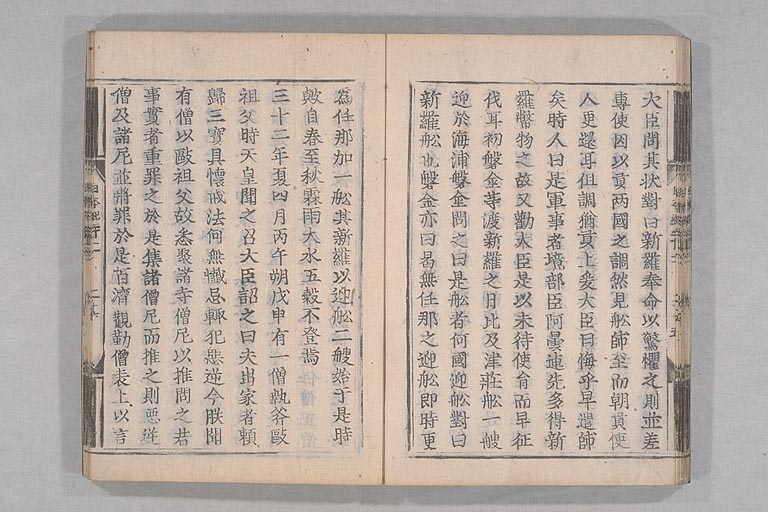 大臣問其状對曰新羅奉命以驚懼之則並差
專使因以貢两國之調然見舩師至而朝貢使
人更還耳但調猶貢上爰大臣曰悔乎早遣師
矣時人曰是軍事者境部臣阿曇連先多得新
羅幣物之故又勸大臣是以未待使旨而早征
伐耳初磐金等渡新羅之日比及津莊舩一艘
迎於海浦磐金問之曰是舩者何國迎舩對曰
新羅舩也磐金亦曰曷無任那之迎舩即時更
爲任那加一舩其新羅以迎舩二艘始于是時
歟自春至秋霖雨大水五穀不登焉
三十二年夏四月丙午朔戊申有一僧執斧毆
祖父時天皇聞之召大臣詔之曰夫出家者頼
歸三寶具懷戒法何無懺忌輙犯惡逆今朕聞
有僧以毆祖父故悉聚諸寺僧尼以推問之若
事實者重罪之於是集諸僧尼而推之則惡逆
僧及諸尼並將罪於是百濟觀勒僧表上以言
日本紀
二